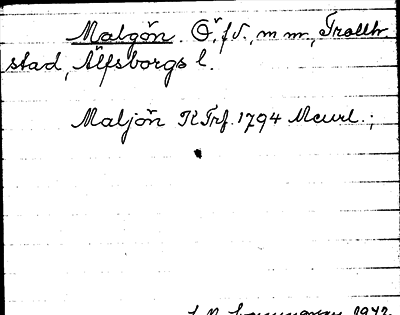 Malgön. Ö, f d., m m., Trollh.
stad, Älfsborgs l.
Maljön KTrf. 1794 Meurl.;
1942